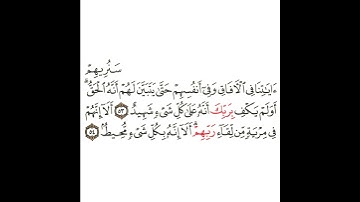 سَنُرِيهِمْ
ءَايَٰتِنَا فِي ٱلْءَافَاقِ وَفِيٓ أَنفُسِهِمْ حَتَّىٰ يَتَبَيَّنَ لَهُمْ أَنَّهُ ٱلْحَقُّۗ
أَوَلَمْ يَكْفِ بِرَبِّكَ أَنَّهُۥ عَلَىٰ كُلِّ شَيْءٍ شَهِيدٌ ٥٣ أَلَآ إِنَّهُمْ
فِي مِرْيَةٍ مِّن لِّقَآءِ رَبِّهِمْۗ أَلَآ إِنَّهُۥ بِكُلِّ شَيْءٍ مُّحِيطٌۢ ٥٤